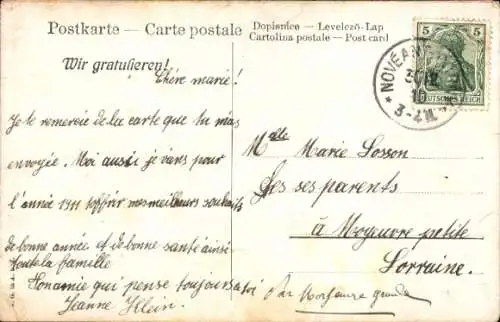 Postkarte — Carte postale
Dopisnice — Levelező-Lap
Cartolina postale — Post card
Wir gratulieren!
5 5
DEUTSCHES REICH
NOVÉANT
3-4 N.
Chère marie!
Je te remercie de la carte que tu m'as
envoyée. Moi aussi je vans pour
l'année 1911 t'offrir mes meilleurs souhaits
de bonne année et de bonne santé ainsi
toute la famille
Ton amie qui pense toujours à toi
Jeanne Klein.
Mlle Marie Sosson
Ches ses parents
à Moyeuvre petite
Lorraine.
Par Moyeuvre grande